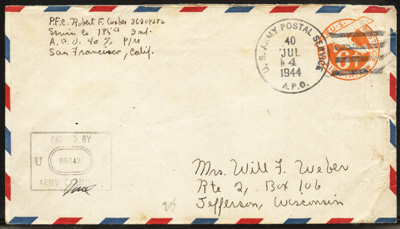 P.F.C. Robert F. Weber
Service Co 185th Inf.
A.P.O. 40 % P/M
San Francisco, Calif.
U.S. ARMY POSTAL SERVICE
40
JUL
4
1944
A.P.O.
PASSED BY
U S
ARMY
Mrs. Will F. Weber
Rte 2, Box 106
Jefferson, Wisconsin